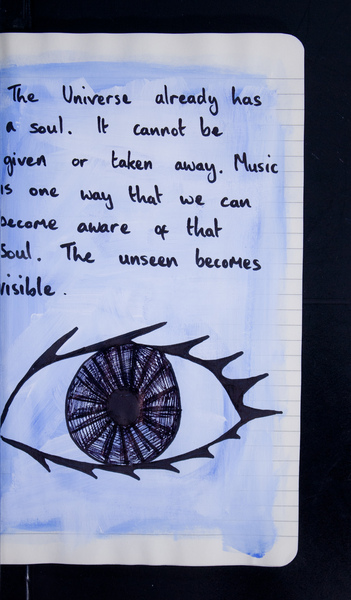 The Universe already has
a soul. It cannot be
given or taken away. Music
is one way that we can
become aware of that
Soul. The unseen becomes
visible.